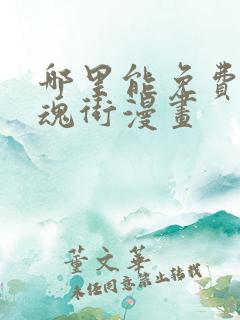 哪里能免費
魂街漫畫
董文華
未经同意禁止转载